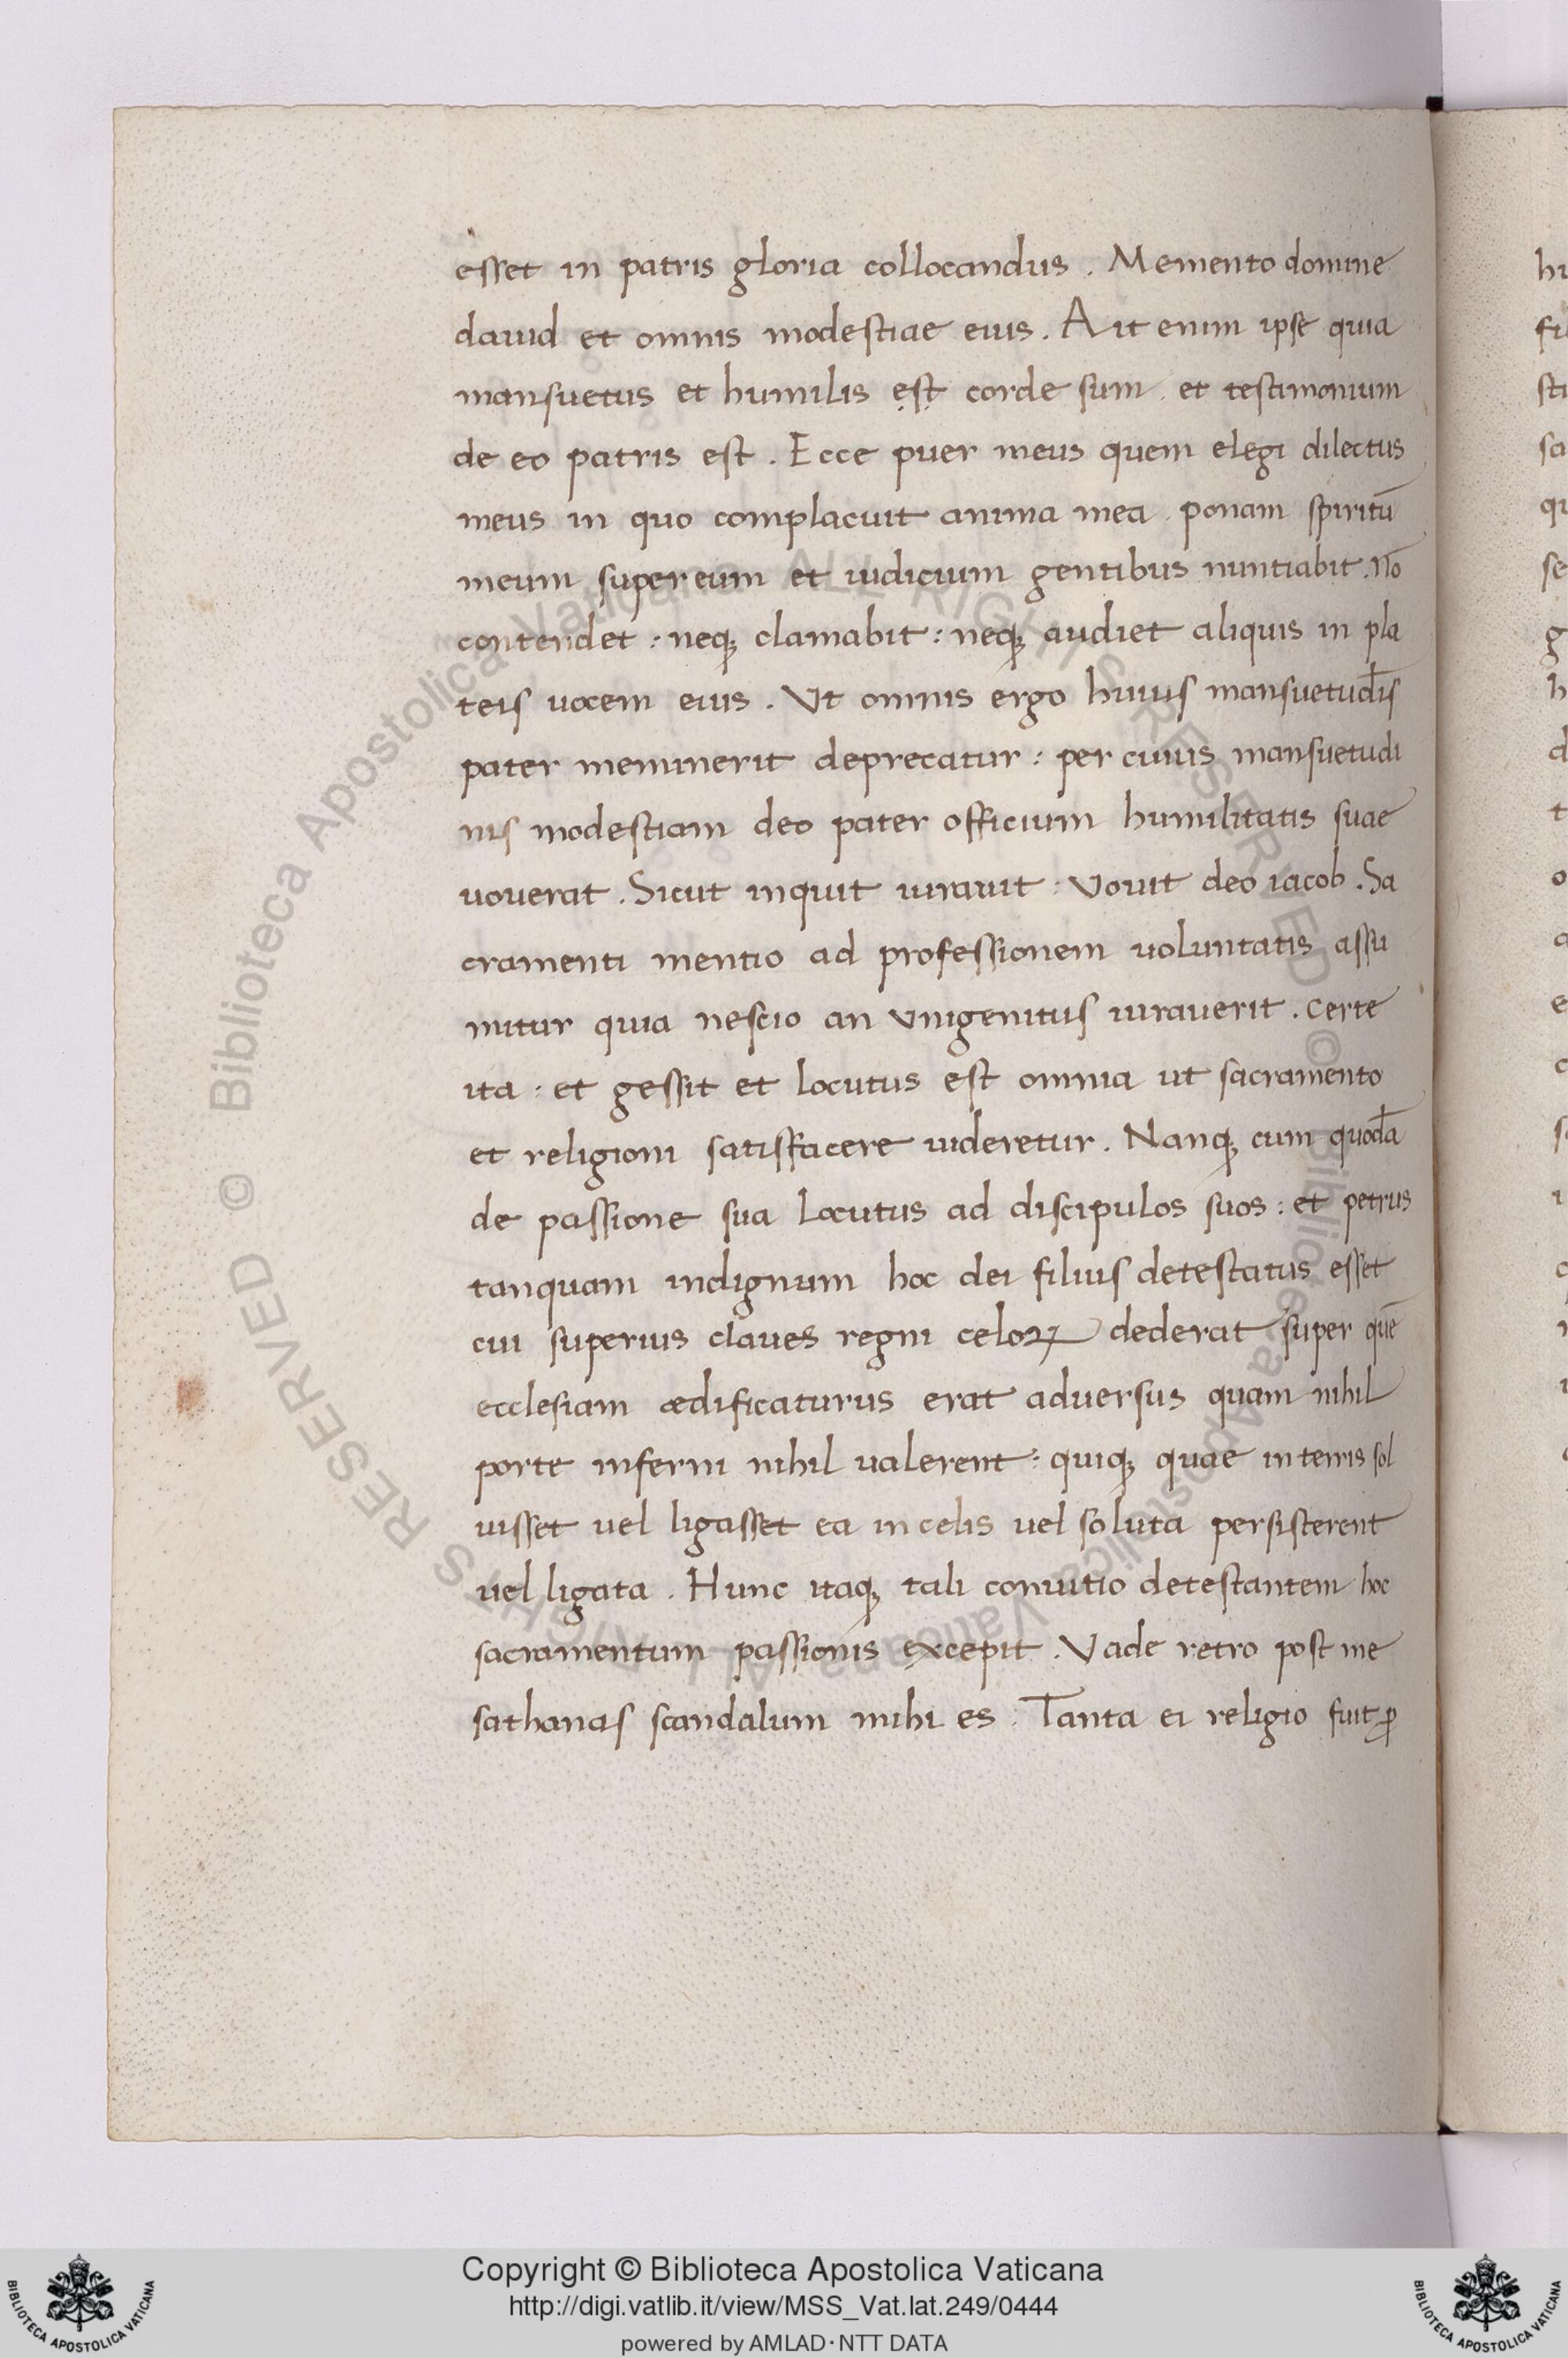 esset in patris gloria collocandus . Memento domine
dauid et omnis modestiae eius . Ait enim ipse quia
mansuetus et humilis est corde sum . et testimonium
de eo patris est . Ecce puer meus quem elegi dilectus
meus in quo complacuit anima mea . ponam spiritū
meum super eum et iudicium gentibus nuntiabit . nō
contendet : neqꝫ clamabit : neqꝫ audiet aliquis in pla
teis uocem eius . Vt omnis ergo huius mansuetud̄is
pater meminerit deprecatur : per cuius mansuetudi
nis modestiam deo pater officium humilitatis suae
uouerat . Sicut inquit iurauit : Vouit deo iacob . Sa
cramenti mentio ad professionem uoluntatis assu
mitur quia nescio an vnigenitus iurauerit . certe
ita : et gessit et locutus est omnia ut sacramento
et religioni satisfacere uideretur . Nanqꝫ cum quodā
de passione sua locutus ad discipulos suos : et petrus
tanquam indignum hoc dei filius detestatus esset
cui superius claues regni celoꝝ dederat super quē
ecclesiam ædificaturus erat aduersus quam nihil
porte inferni nihil ualerent : quiqꝫ quae in terris sol
uisset uel ligasset ea in celis uel soluta persisterent
uel ligata . Hunc itaqꝫ tali conuitio detestantem hoc
sacramentum passionis excepit . Vade retro post me
sathanas scandalum mihi es . Tanta ei religio fuit ꝓ
hu
fil
sti
sa
qu
se
g
h
d
t
o
a
e
c
© Biblioteca Apostolica Vaticana ALL RIGHTS RESERVED © Biblioteca Apostolica Vaticana ALL RIGHTS RESERVED
BIBLIOTECA APOSTOLICA VATICANA
Copyright © Biblioteca Apostolica Vaticana
http://digi.vatlib.it/view/MSS_Vat.lat.249/0444
powered by AMLAD·NTT DATA
BIBLIOTECA APOSTOLICA VATICANA